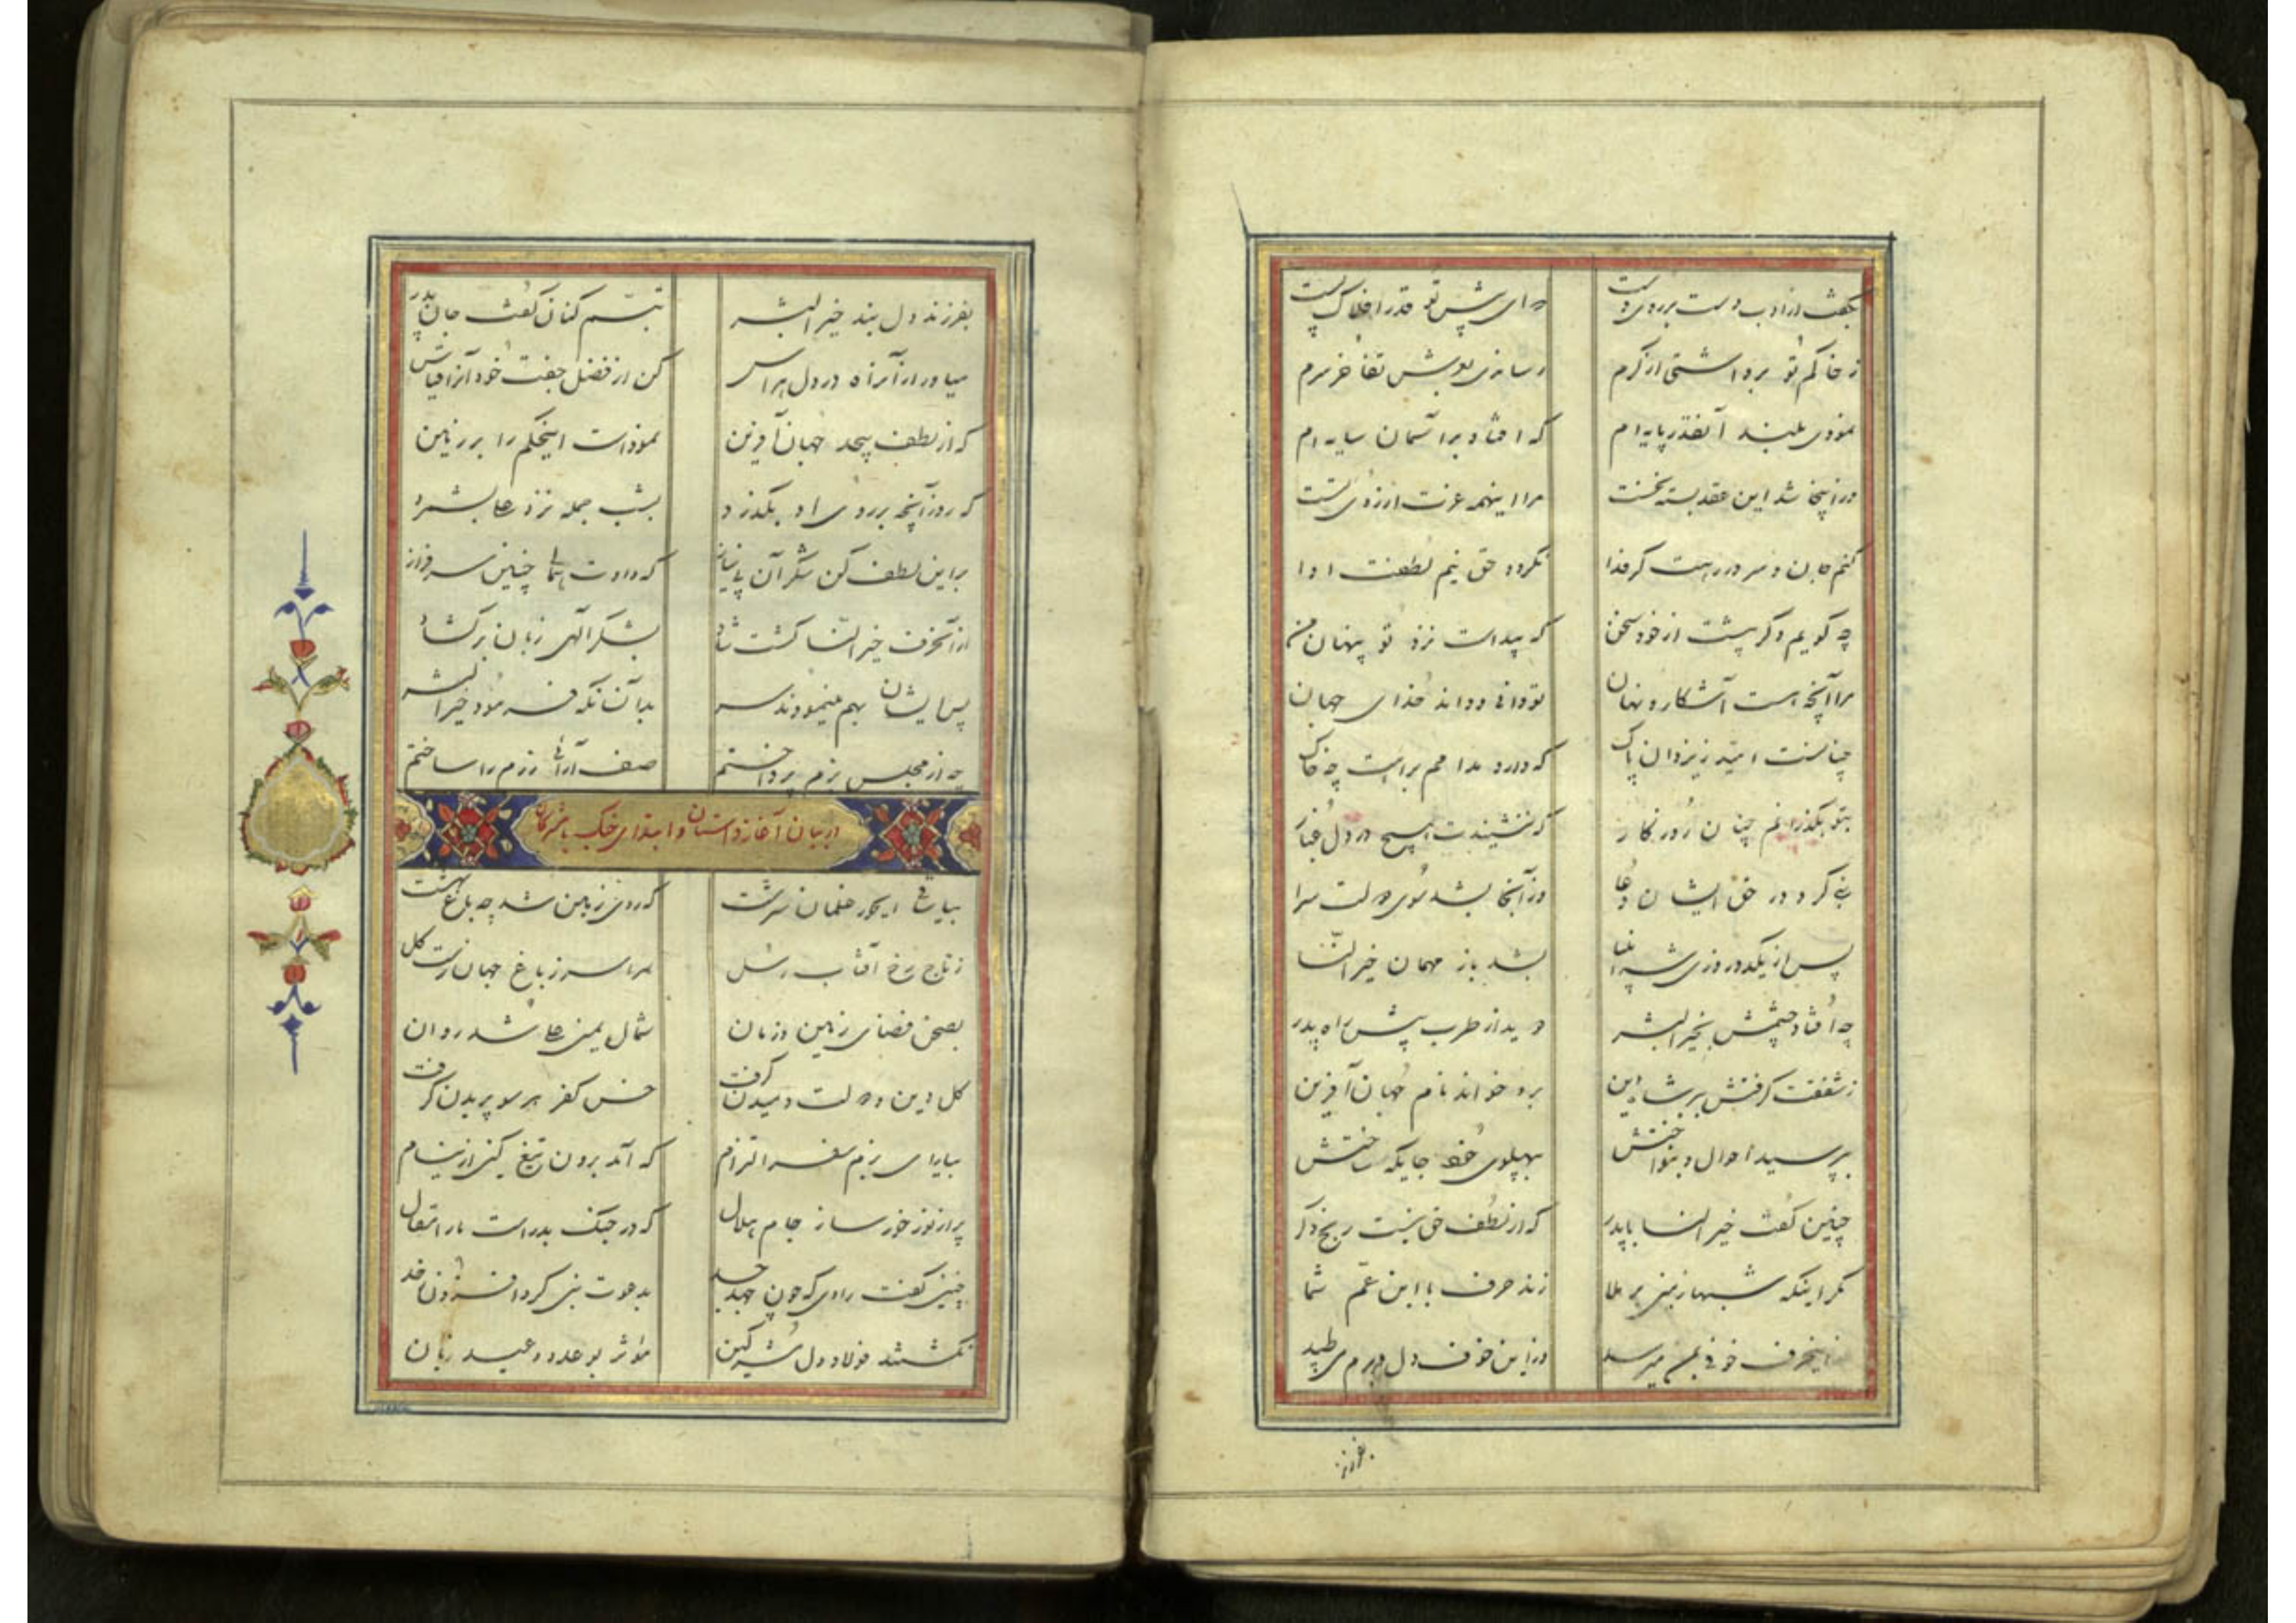 بگفت از ادب دست بر روی دست که ای پیش تو قدر افلاک پست
ز خاکم تو برداشتی از کرم رساندی بعرش تفاخر سرم
نمودی بلند آنقدر پایه ام که افتاد بر آسمان سایه ام
در اینجا شد این عقد بسته نخست مرا اینهمه عزت از روی تست
کنم جان و سر در رهت گر فدا نگردد حق نیم لطفت ادا
چه گویم دگر پیشت از خود سخن که پیداست نزد تو پنهان من
مرا آنچه است آشکار و نهان تو دانی و داند خدای جهان
چنانست امید ز یزدان پاک که دارد مدامم براهت چو خاک
بتو بگذرانم چنان روزگار که ننشیندت هیچ در دل غبار
نبی کرد در حق ایشان دعا وز آنجا بشد سوی دولت سرا
پس از یکدو روزی شه انبیا بشد باز مهمان خیر النسا
چه افتاد چشمش بخیر البشر دوید از طرب پیش راه پدر
ز شفقت گرفتش ببر شاه دین برو خواند نام جهان آفرین
بپرسید احوال و بنواختش بپهلوی خود جایگه ساختش
چنین گفت خیر النسا با پدر که از لطف حق نیست رنج دگر
مگر اینکه شبها زمین بر ملا زند حرف با ابن عم شما
ز اینحرف خوفی بمن میرسد وزاین خوف دل در برم می طپد
بفرزند
بفرزند دلبند خیر البشر تبسم کنان گفت جان پدر
میاور از آنراه در دل هراس کن از فضل جفت خود آنرا قیاس
که از لطف بیحد جهان آفرین نموداست اینحکم را بر زمین
که روز آنچه بر روی او بگذرد بشب جمله نزد علی بشمرد
براین لطف کن شکر آن بی نیاز که دادت همائی چنین سرفراز
از آنحرف خیر النسا گشت شاد بشکر الهی زبان برگشاد
پس ایشان بهم مینمودند سر بدآن نانکه فرمود خیر البشر
چه از مجلس بزم پرداختم صف آرائی رزم را ساختم
در بیان آغاز داستان و ابتدای جنگ با مشرکان
بیا ساقی ای حور غلمان سرشت که روی زمین شد چه باغ بهشت
ز تاج رخ آفتاب رسل سراسر ز باغ جهان رست گل
بصحن فضای زمین و زمان شمال یمین علی شد روان
گل دین و دولت دمیدن گرفت خس کفر هر سو پریدن گرفت
بیارای بزم التزام که آمد برون تیغ کین از نیام
پر از نور خور ساز جام هلال که در جنگ بدر است مارا مقال
چنین گفت راوی که چون جهد جد بدعوت نبی کرد افزون ز حد
نگشتند فولاد دل مشرکین مؤثر بوعد و وعید زبان